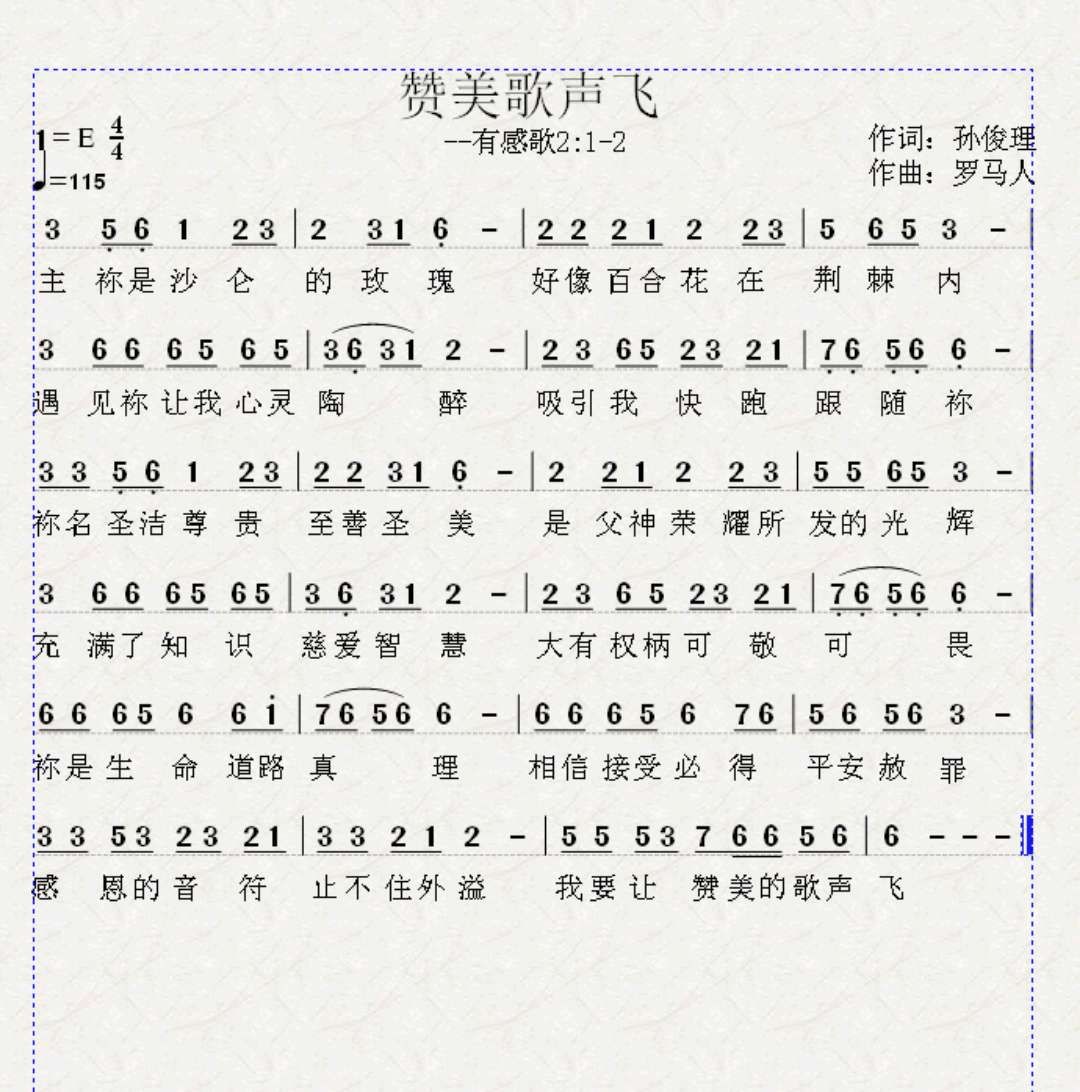 赞美歌声飞
--有感歌2:1-2
1=E 4/4
♩=115
作词：孙俊理
作曲：罗马人
3 5̣ 6̣ 1 2 3 | 2 3 1 6̣ - | 2 2 2 1 2 2 3 | 5 6 5 3 - |
主 祢是沙仑 的玫瑰 好像百合花在 荆棘内
3 6 6 6 5 6 5 | 3 6̣ 3 1 2 - | 2 3 6 5 2 3 2 1 | 7̣ 6̣ 5̣ 6̣ 6̣ - |
遇 见祢让我心灵 陶 醉 吸引我 快 跑 跟 随 祢
3 3 5̣ 6̣ 1 2 3 | 2 2 3 1 6̣ - | 2 2 1 2 2 3 | 5 5 6 5 3 - |
祢名圣洁尊贵 至善圣美 是父神荣耀所 发的光辉
3 6 6 6 5 6 5 | 3 6̣ 3 1 2 - | 2 3 6 5 2 3 2 1 | 7̣ 6̣ 5̣ 6̣ 6̣ - |
充 满了知识 慈爱智慧 大有权柄可敬 可 畏
6 6 6 5 6 6 i | 7 6 5 6 6 - | 6 6 6 5 6 7 6 | 5 6 5 6 3 - |
祢是生命道路 真 理 相信接受必得 平安赦罪
3 3 5 3 2 3 2 1 | 3 3 2 1 2 - | 5 5 5 3 7 6 6 5 6 | 6 - - -
感 恩的音符 止不住外溢 我要让 赞美的歌声 飞